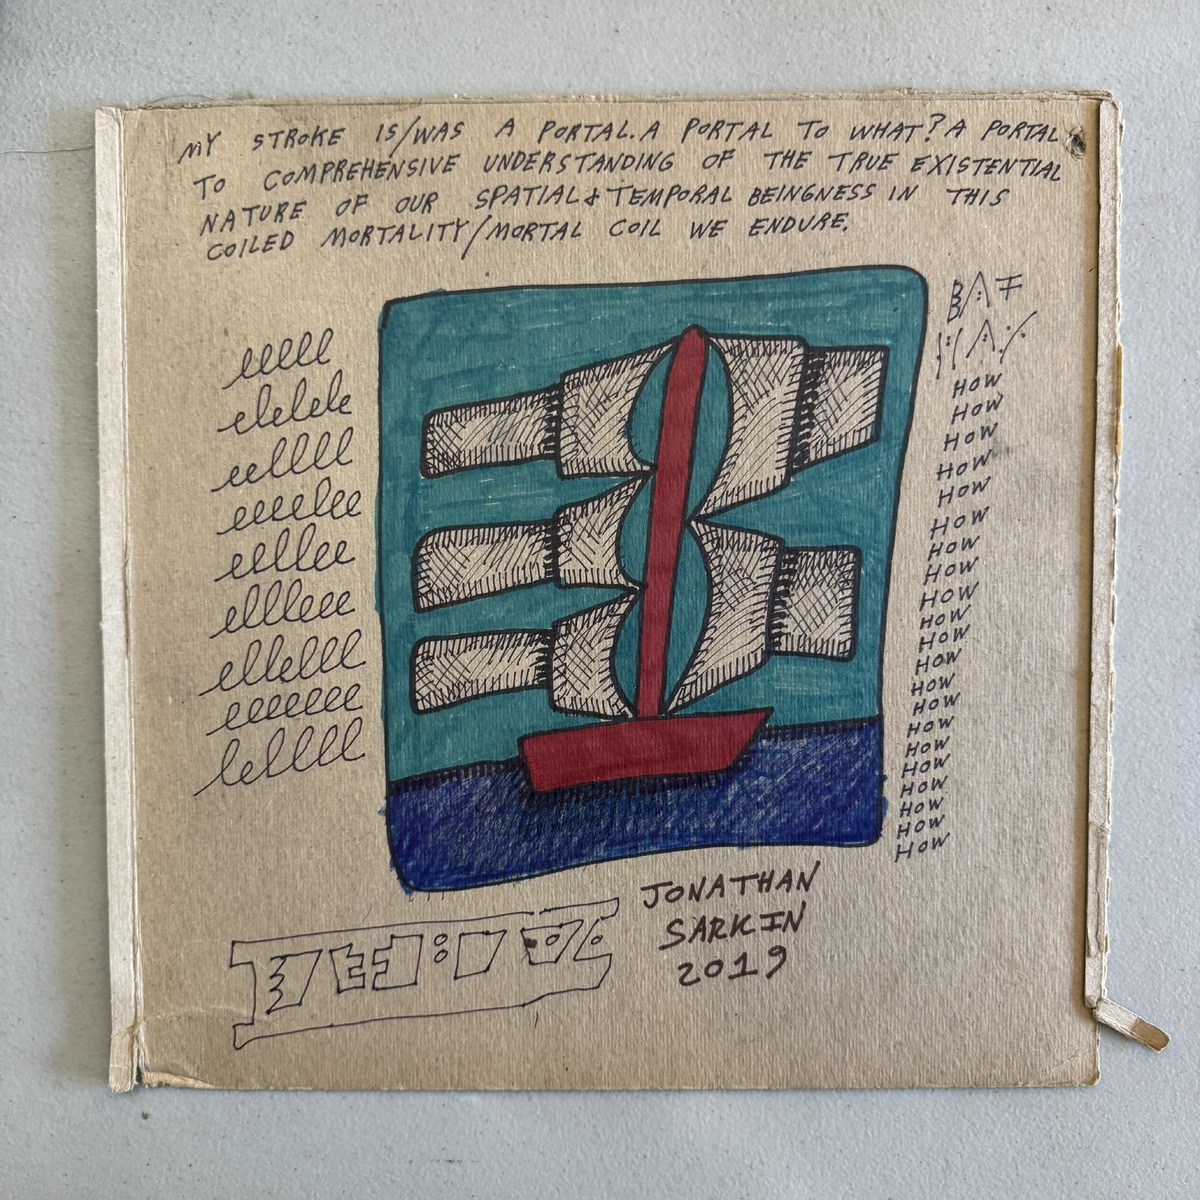 MY STROKE IS/WAS A PORTAL. A PORTAL TO WHAT? A PORTAL
TO COMPREHENSIVE UNDERSTANDING OF THE TRUE EXISTENTIAL
NATURE OF OUR SPATIAL & TEMPORAL BEINGNESS IN THIS
COILED MORTALITY/MORTAL COIL WE ENDURE.
HOW
HOW
HOW
HOW
HOW
HOW
HOW
HOW
HOW
HOW
HOW
HOW
HOW
HOW
HOW
HOW
HOW
HOW
HOW
HOW
HOW
JONATHAN
SARKIN
2019